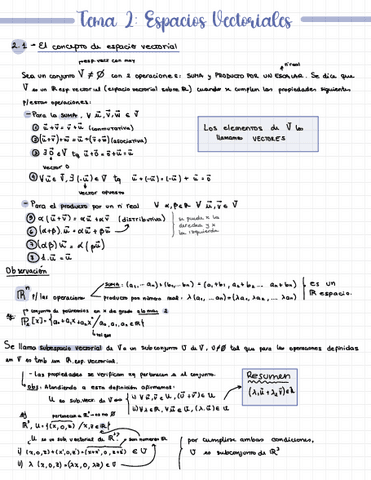 Tema 2: Espacios Vectoriales
2.1 - El concepto de espacio vectorial
Sea un conjunto V ≠ ∅ con 2 operaciones: SUMA y PRODUCTO POR UN ESCALAR. Se dice que
V es un R esp. vectorial (espacio vectorial sobre R) cuando se cumplen las propiedades siguientes
p/estas operaciones:
- Para la suma, ∀ u⃗, v⃗, w⃗ ∈ V
① u⃗+v⃗ = v⃗+u⃗ (conmutativa)
② (u⃗+v⃗)+w⃗ = u⃗+(v⃗+w⃗) (asociativa)
③ ∃ 0⃗ ∈ V tq u⃗+0⃗ = 0⃗+u⃗ = u⃗
vector 0
④ ∀u⃗ ∈ V, ∃ (-u⃗) ∈ V tq u⃗+(-u⃗) = (-u⃗)+u⃗ = 0⃗
vector opuesto
Los elementos de V los
llamamos VECTORES.
- Para el producto por un nº real ∀ α, β ∈ R ∀ u⃗, v⃗ ∈ V
⑤ α(u⃗+v⃗) = αu⃗+αv⃗ (distributiva)
⑥ (α+β)·u⃗ = αu⃗+βu⃗
⑦ (αβ)u⃗ = α(βu⃗)
⑧ 1·u⃗ = u⃗
Observación
Rⁿ p/ las operaciones
suma: (a₁,... aₙ)+(b₁,... bₙ) = (a₁+b₁, a₂+b₂ ... aₙ+bₙ)
producto por número real: λ(a₁,... aₙ) = (λa₁, λa₂, ... λaₙ)
es un
R espacio.
conjunto de polinomios en x de grado ≤ 2
P₂[x] = {a₀+a₁x+a₂x² / a₀, a₁, a₂ ∈ R}
Se llama subespacio vectorial de V a un subconjunto U de V, U≠∅ tal que para las operaciones definidas
en V es tmb un R esp. vectorial.
- Las propiedades se verifican
- obs: Atendiendo a esta definición afirmamos:
U es sub. vec. de V
i) ∀u⃗, v⃗ ∈ U, (u⃗+v⃗) ∈ U
ii) ∀λ ∈ R, ∀u⃗ ∈ U, (λ·u⃗) ∈ U
Resumen
R³, U = {(x, 0, z) / x, z ∈ R}
U es un sub. vectorial de R³?
i) (x,0,z)+(x',0,z') = (x+x', 0, z+z') ∈ U
ii) λ(x,0,z) = (λx, 0, λz) ∈ U
por cumplirse ambas condiciones,
U es subconjunto de R³